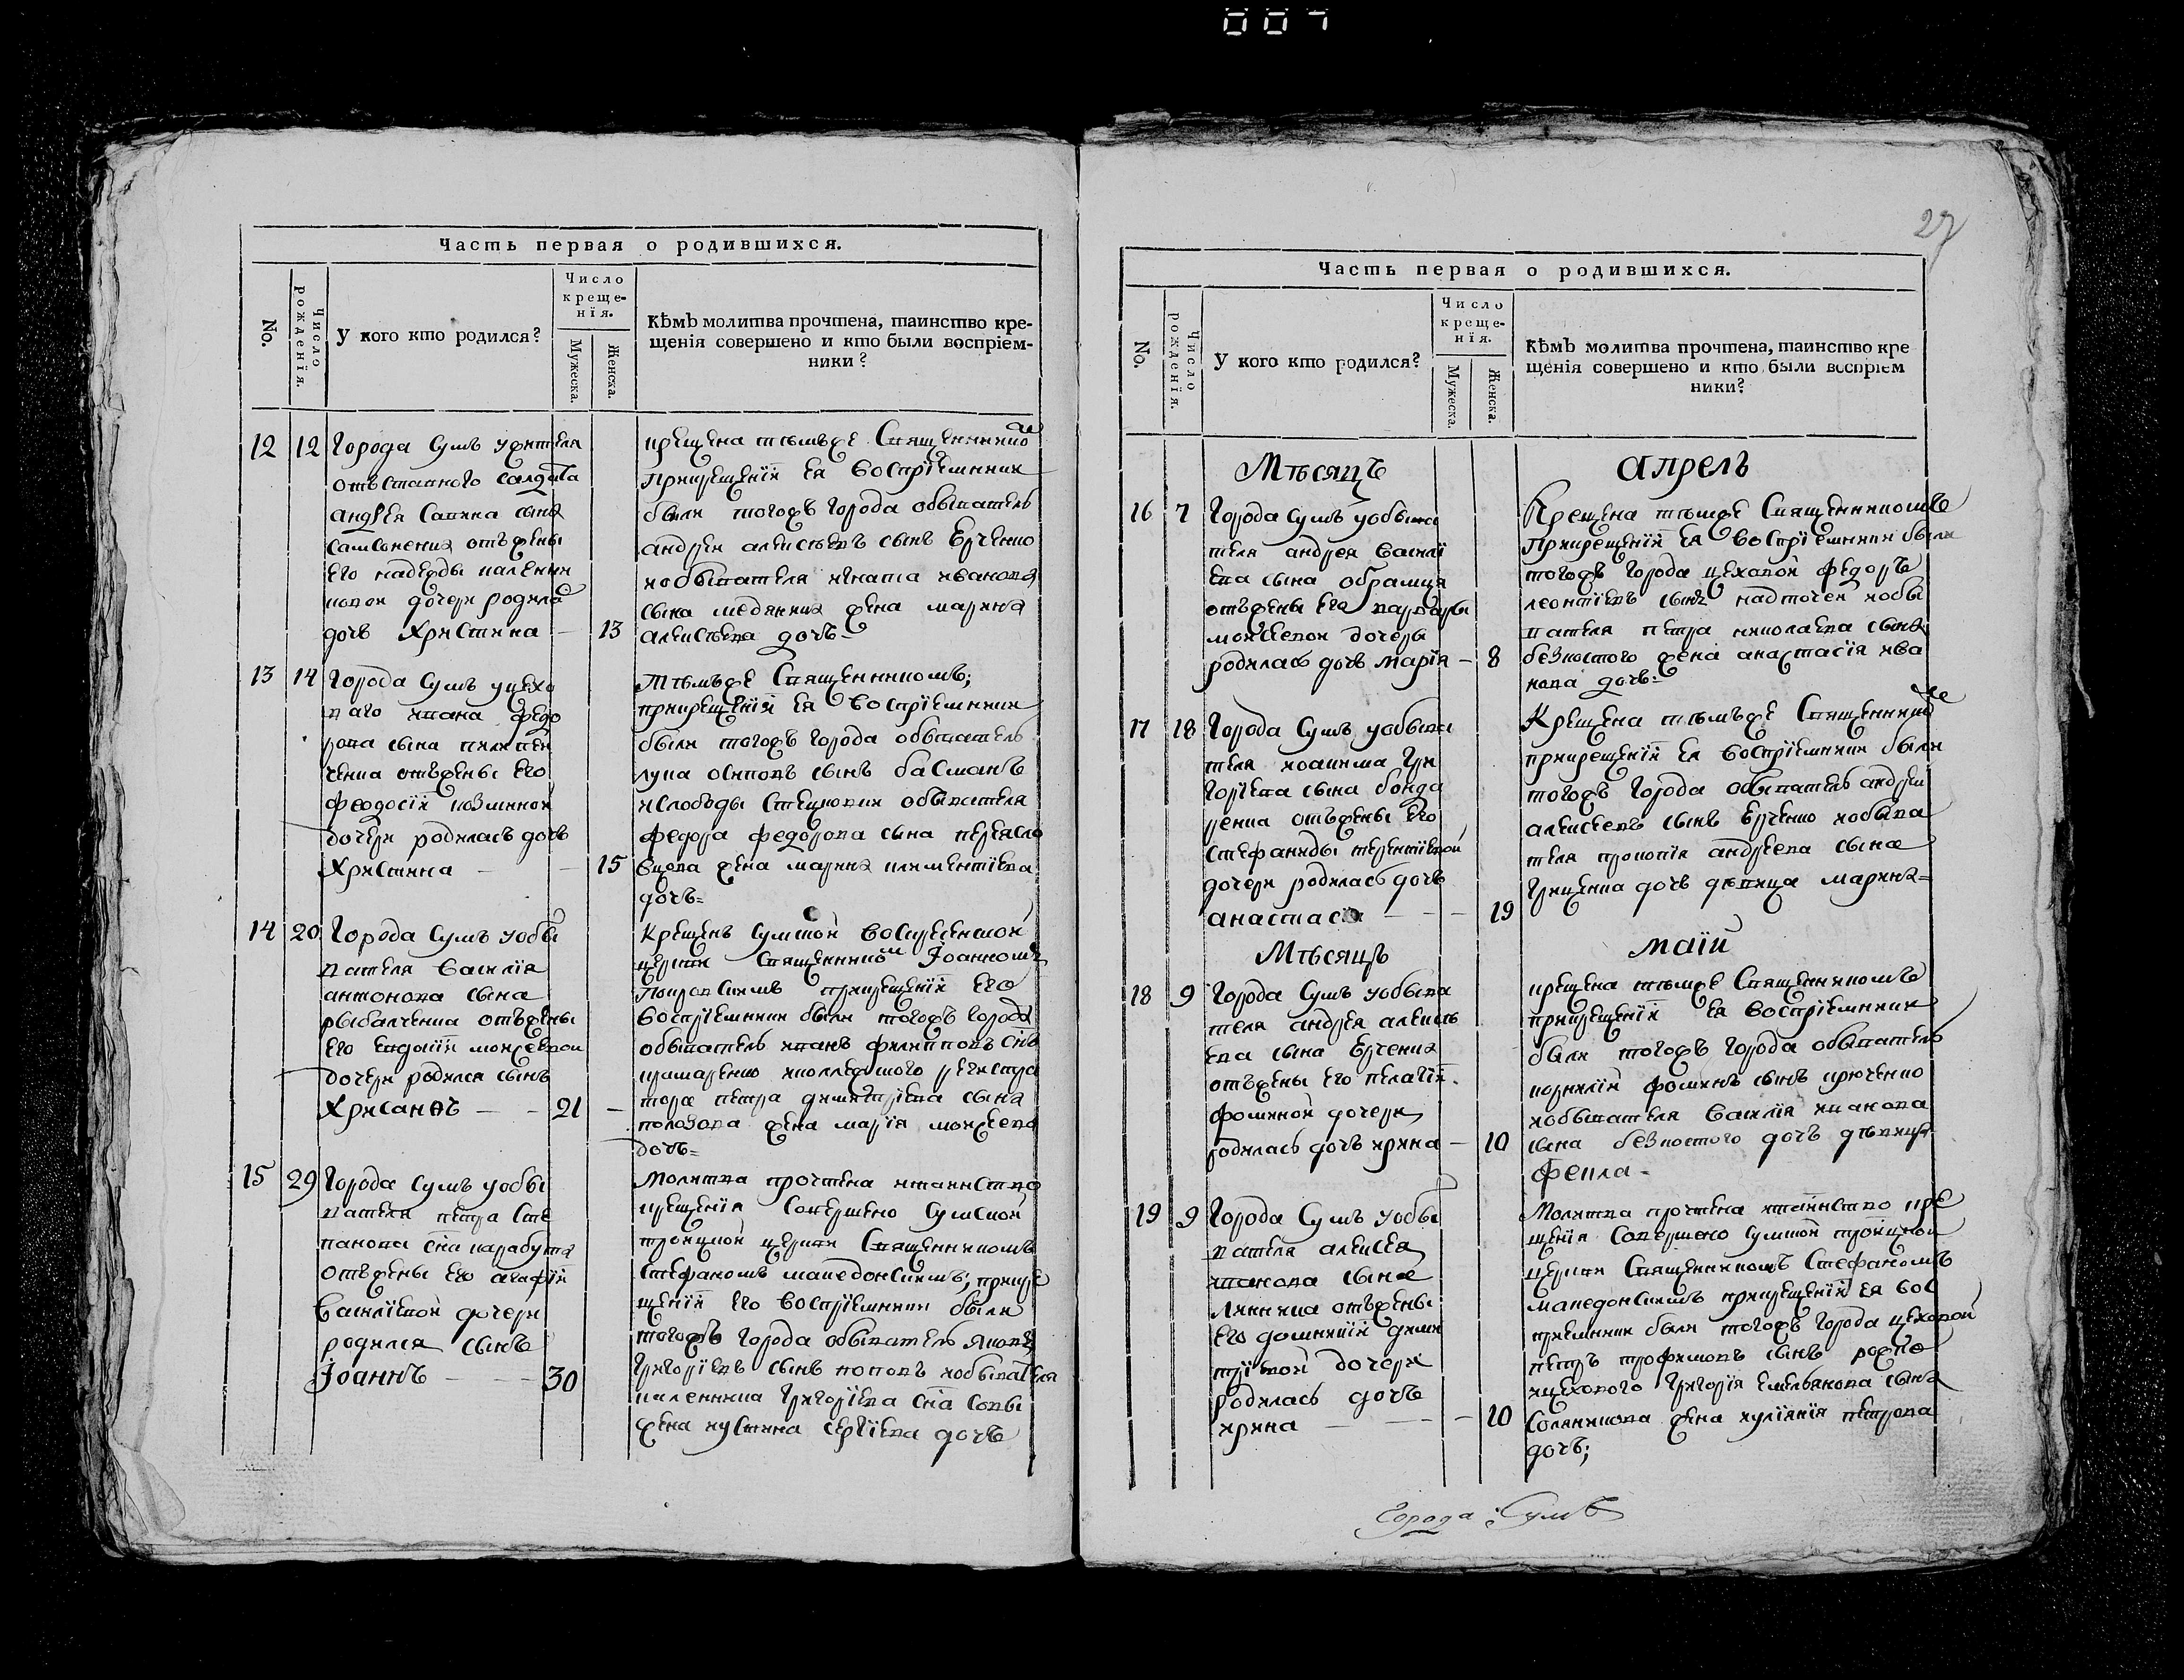 007
Часть первая о родившихся.
No.
Число рожденїя.
У кого кто родился?
Число
креще-
нїя.
Мужеска.
Женска.
Кѣмъ молитва прочтена, таинство кре-
щенія совершено и кто были воспріем-
ники?
12 12 Города Сумъ ужителя
отъставного салдата
андрея Сапина сына
отъжены
его надежды каленни
ковои дочери родила
дочь Христина — 13
крещена тѣмъже Священникомъ
прикрещенїи ея воспрїемники
были тогожъ города обыватель
андреи алексѣевъ сынъ Ерченко
иобывателя игната иванова
сына медяника жена марина
алексѣева дочь=
13 14 Города Сумъ уцехо
ваго ивана федо
рова сына пилипен
ченка отъжены его
феодосїи козминои
дочери родилась дочь
Христина — — 15
Тѣмъже Священникомъ;
прикрещенїи ея воспрїемники
были тогожъ города обыватель
лука осиповъ сынъ басманъ
ислободы Стецковки обывателя
федора федорова сына переясло
вцова жена марина климентїева
дочь=
14 20 Города Сумъ уобы
вателя василїя
антонова сына
рыбалченка отъжены
его евдокїи моисѣевои
дочери родился сынъ
Хрисанѳъ — — 21 —
Крещенъ сумскои воскресенскои
церкви священникомъ Іоанномъ
Покровскимъ прикрещенїи его
воспрїемники были тогожъ города
обыватель иванъ филипповъ снъ
крамаренко иколлежского регистра
тора петра димитрїева сына
полозова жена марїя моисеева
дочь=
15 29 Города Сумъ уобы
вателя петра Сте
панова сна карабута
отъжены его агафїи
Василїевои дочери
родился сынъ
Іоаннъ — — — 30
Молитва прочтена итаинство
крещенїя совершено сумскои
троицкои церкви Священникомъ
стефаномъ македонскимъ; прикре
щенїи его воспрїемники были
тогожъ города обыватель яковъ
григорїевъ сынъ поповъ иобывателя
каленника григорїева сна совы
жена иустина сергїева дочь
27
Часть первая о родившихся.
No.
Число рожденїя.
У кого кто родился?
Число
креще-
нїя.
Мужеска.
Женска.
Кѣмъ молитва прочтена, таинство кре
щенія совершено и кто были воспріем
ники?
Мѣсяцъ апрель
16 7 Города Сумъ уобыва
теля андрея васил
ева сына образица
отъжены его варвары
моисеевои дочери
родилась дочь марїя — 8
Крещена тѣмже Священникомъ
прикрещенїи ея воспрїемники были
тогожъ города цеховои федоръ
леонтїевъ сынъ надточеи иобы
вателя петра николаева сына
безкостого жена анастасїя ива
нова дочь=
17 18 Города Сумъ уобыва
теля иоакима гри
горїева сына бонда
ренка отъжены его
стефаниды терентїевои
дочери родилась дочь
анастасїя — — — 19
Крещена тѣмъже Священникомъ
прикрещенїи ея воспрїемники были
тогожъ города обыватель андреи
алексеевъ сынъ ерченко иобыва
теля прокопїя андреева сына
грищенка дочь дѣвица марина=
Мѣсяцъ маїи
18 9 Города Сумъ уобыва
теля андрея алексѣ
ева сына Ерченка
отъжены его пелагїи
фоминои дочери
родилась дочь ирина — 10
крещена тѣмже Священникомъ
прикрещенїи ея воспрїемники
были тогожъ города обыватель
корнилїи фоминъ сынъ крюченко
иобывателя василїя иванова
сына безкостого дочь дѣвица
фекла=
19 9 Города Сумъ уобы
вателя алексея
иванова сына
линника отъжены
его домникїи дими
трїевои дочери
родилась дочь
ирина — — — 10
Молитва прочтена итаинство кре
щенїя совершено сумскои троицкои
церкви Священникомъ Стефаномъ
македонскимъ прикрещенїи ея вос
прїемники были тогожъ города цеховои
петръ трофимовъ сынъ
ицехового григорїя емельянова сына
солянникова жена иулїянїя петрова
дочь;
Города Сумъ